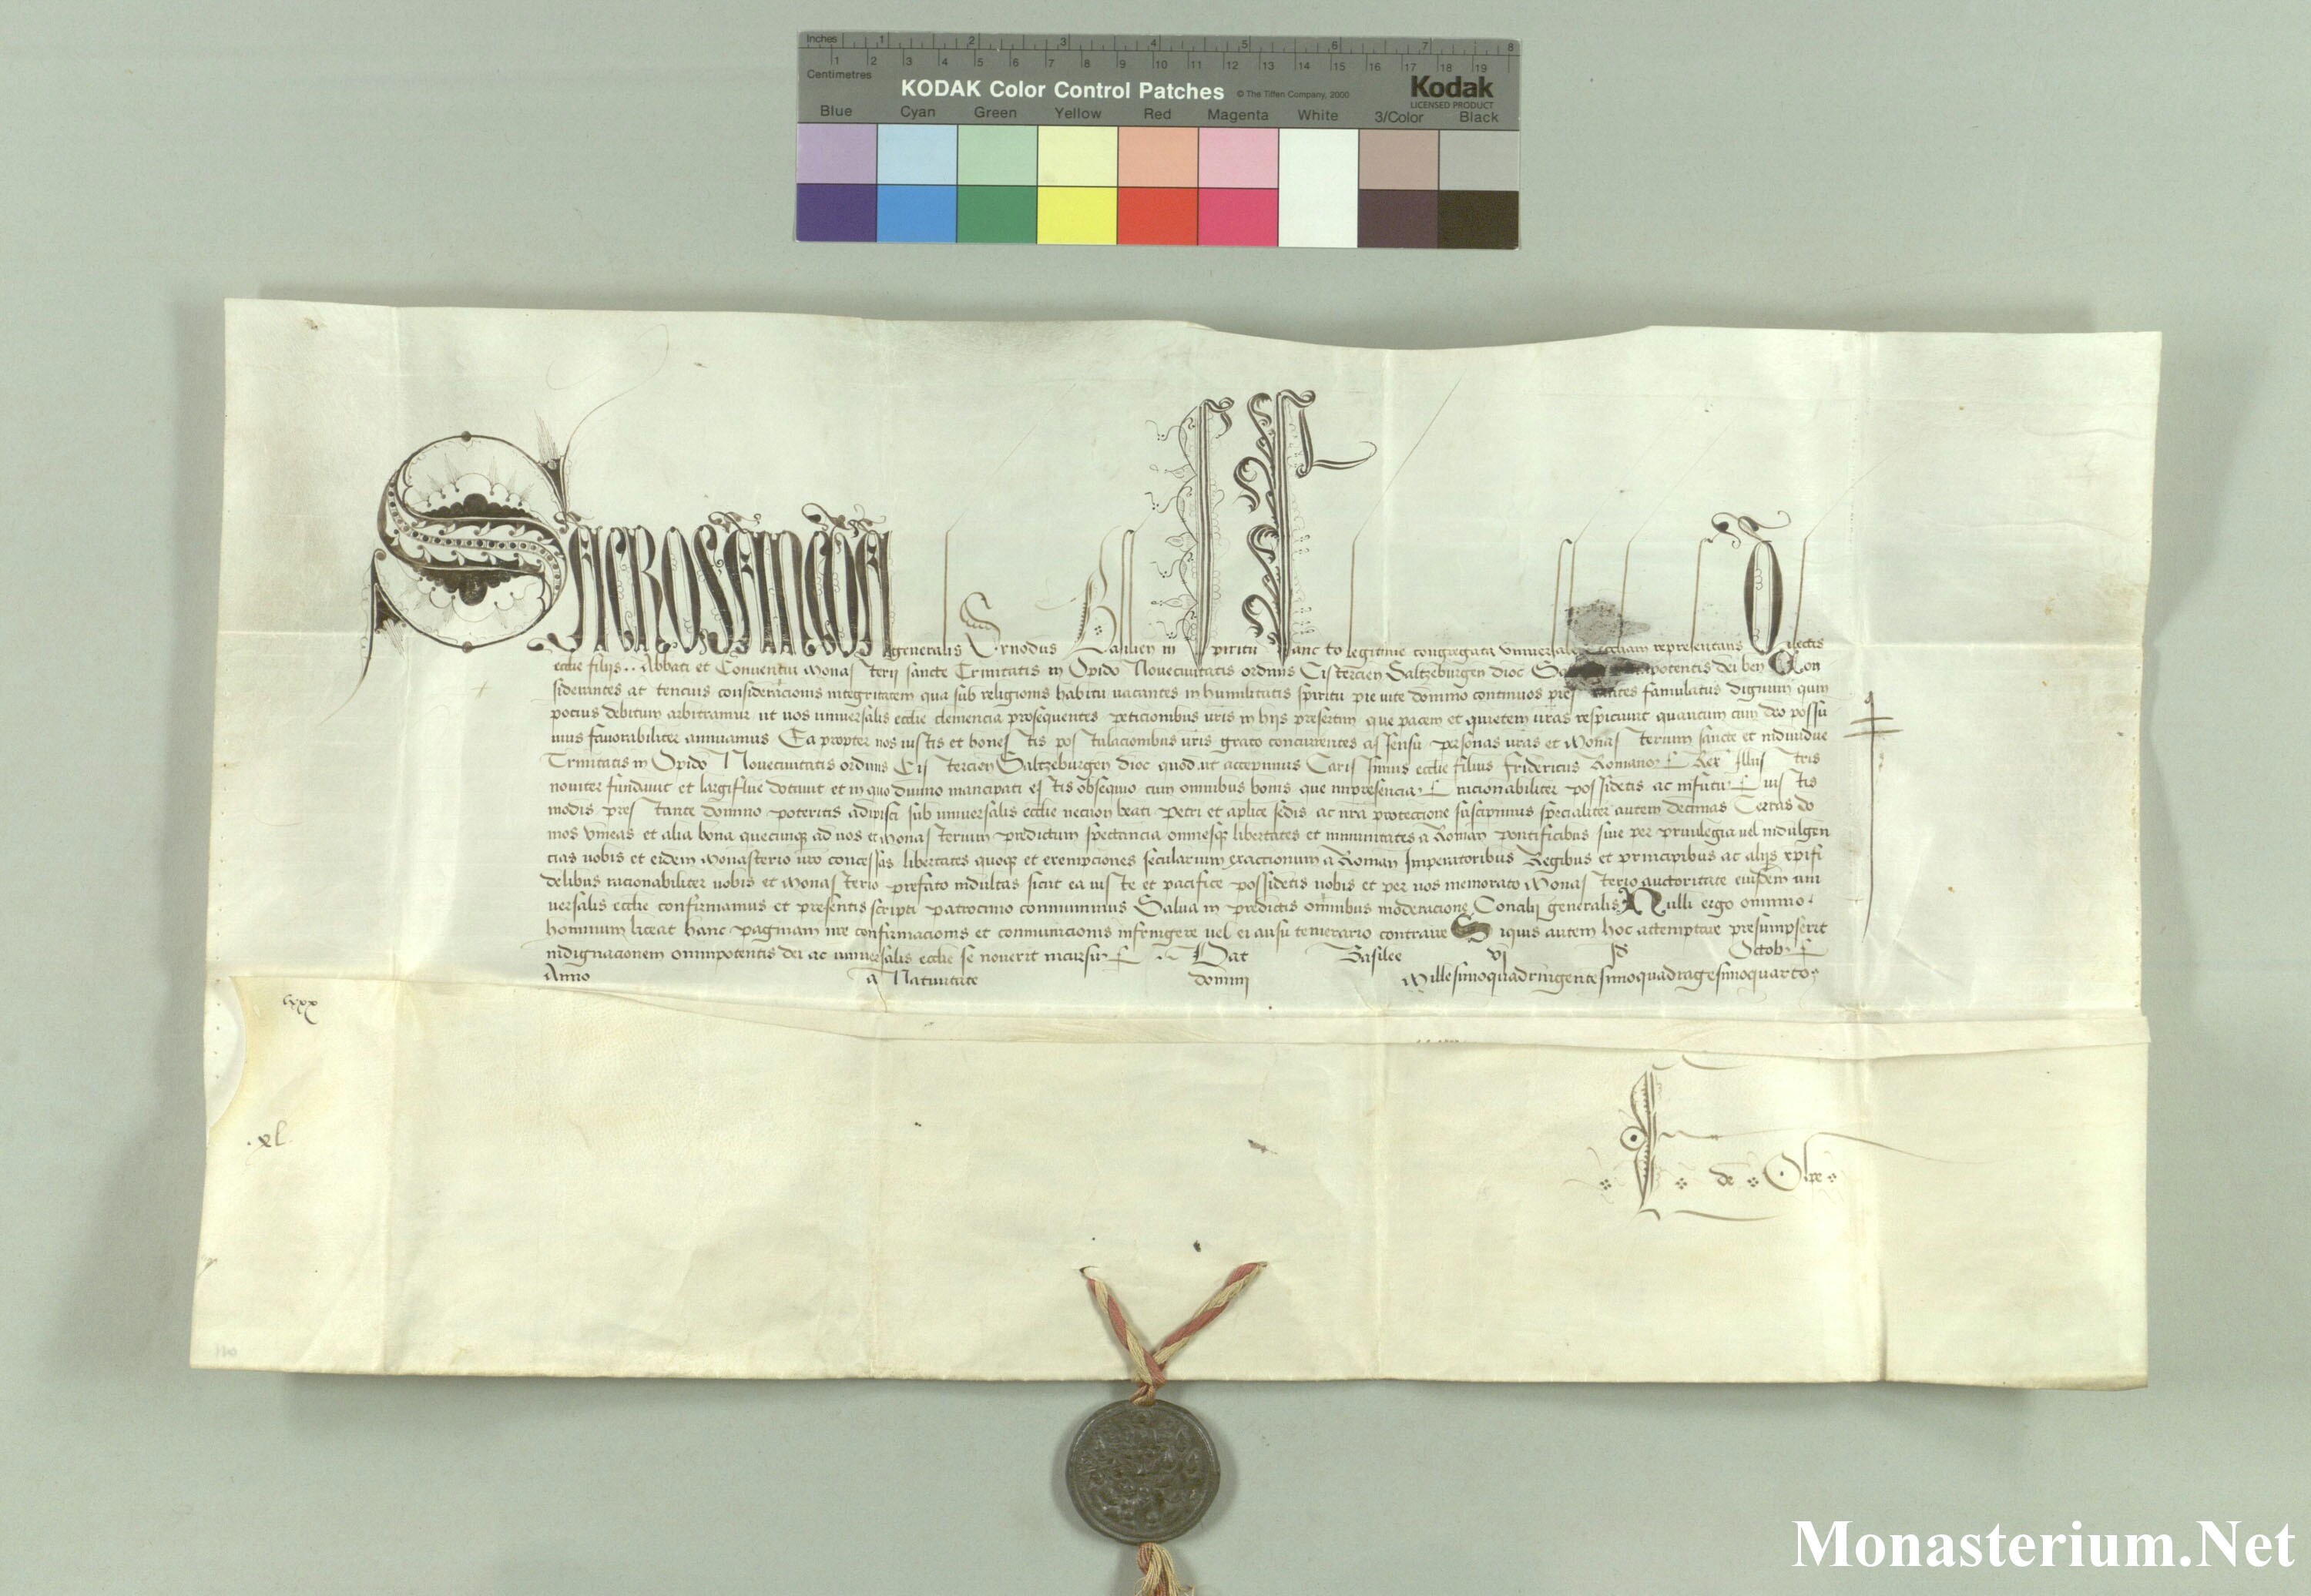 Inches 1 2 3 4 5 6 7 8
1 2 3 4 5 6 7 8 9 10 11 12 13 14 15 16 17 18 19
Centimetres
KODAK Color Control Patches © The Tiffen Company, 2000 Kodak
LICENSED PRODUCT
Blue Cyan Green Yellow Red Magenta White 3/Color Black
SACROSANCTA generalis Sinodus Basilien in Spiritu Sancto legitime congregata universalem eccliam representans Dilectis
ecclie filijs .. Abbati et Conventui Monasterij sancte Trinitatis in Opido Novecivitatis ordinis Cistercien Saltzeburgen dioc omnipotentis dei ben Con
siderantes ac tencius consideracionis integritatem qua sub religionis habitu vacantes in humilitatis spiritu pie vite domino continuos famulatus dignum quin
pocius debitum arbitramur ut vos universalis ecclie clemencia prosequentes peticionibus vris in hijs presertim que pacem et quietem vras respiciunt quantum cum deo possu
mus favorabiliter annuamus Ea propter nos iustis et honestis postulacionibus vris grato concurrentes assensu personas vras et Monasterium sancte et individue
Trinitatis in Opido Novecivitatis ordinis Cistercien Saltzeburgen dioc quod ut accepimus Carissimus ecclie filius Fridericus Romanor Rex Illustris
noviter fundavit et largiflue dotavit et in quo divino mancipati estis obsequio cum omnibus bonis que inpresenciar racionabiliter possidetis ac infutur iustis
modis prestante domino poteritis adipisci sub universalis ecclie necnon beati Petri et aplice sedis ac nra protectione suscipimus specialiter autem decimas Terras do
mos vineas et alia bona quecunque ad vos et Monasterium predictum spectancia omnesque libertates et immunitates a Roman pontificibus sive per privilegia vel indulgen
cias vobis et eidem Monasterio vro concessas libertates quoque et exempciones secularium exactionum a Roman Imperatoribus Regibus et principibus ac alijs xpifi
delibus racionabiliter vobis et Monasterio prefato indultas sicut ea iuste et pacifice possidetis vobis et per vos memorato Monasterio auctoritate eiusdem uni
versalis ecclie confirmamus et presentis scripti patrocinio communimus Salva in predictis omnibus moderacione Concilij generalis Nulli ergo omnino
hominum liceat hanc paginam nre confirmacionis et communicionis infringere vel ei ausu temerario contraire Siquis autem hoc attemptare presumpserit
indignacionem omnipotentis dei ac universalis ecclie se noverit incursur Dat Basilee vj Octobr
Anno a Nativitate domini Millesimoquadringentesimoquadragesimoquarto
lxxx
.xl.
de Olpe
Monasterium.Net